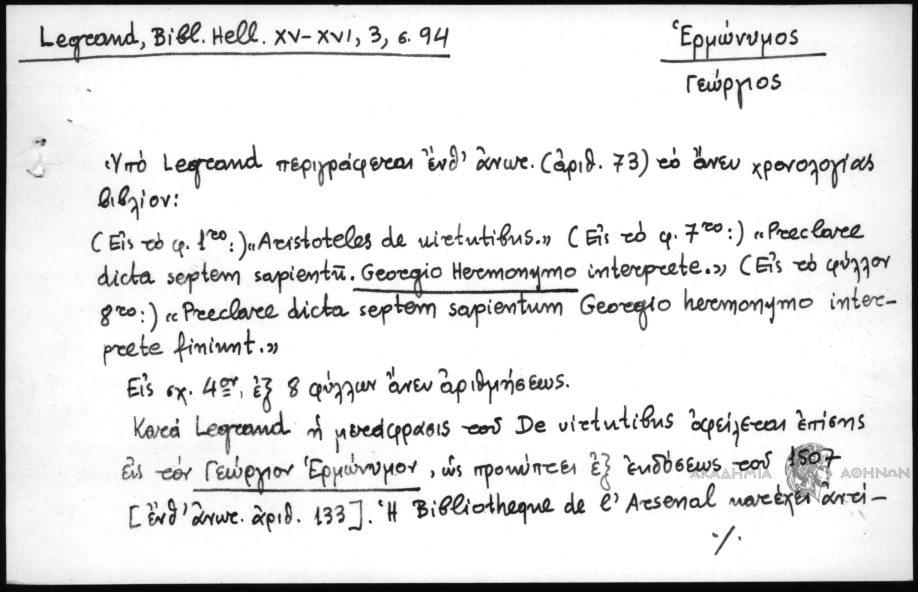 Legrand, Bibl. Hell. XV-XVI, 3, σ. 94
Ἑρμώνυμος
Γεώργιος
Ὑπό Legrand περιγράφεται ἔνθ' ἄνωτ. (ἀριθ. 73) τό ἄνευ χρονολογίας
βιβλίον:
(Εἰς τό φ. 1ro:) «Aristoteles de virtutibus.» (Εἰς τό φ. 7ro:) «Preclare
dicta septem sapientū. Georgio Hermonymo interprete.» (Εἰς τό φύλλον
8ro:) «Preclare dicta septem sapientum Georgio hermonymo inter-
prete finiunt.»
Εἰς σχ. 4ον, ἐξ 8 φύλλων ἄνευ ἀριθμήσεως.
Κατά Legrand ἡ μετάφρασις τοῦ De virtutibus ὀφείλεται ἐπίσης
εἰς τόν Γεώργιον Ἑρμώνυμον, ὡς προκύπτει ἐξ ἐκδόσεως τοῦ 1507
[ἔνθ' ἄνωτ. ἀριθ. 133]. Ἡ Bibliotheque de l'Arsenal κατέχει ἀντί-
./.
ΑΚΑΔΗΜΙΑ ΑΘΗΝΩΝ